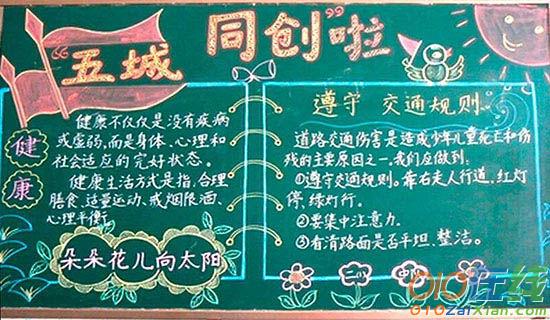 “五城同创”啦
健康
健康不仅仅是没有疾病
或虚弱,而是身体、心理和
社会适应的完好状态。
健康生活方式是指,合理
膳食、适量运动、戒烟限酒、
心理平衡。
朵朵花儿向太阳
遵守 交通规则
道路交通伤害是造成少年儿童死亡和伤
残的主要原因之一,我们应做到:
①遵守交通规则。靠右走人行道,红灯
停,绿灯行。
②要集中注意力.
③看清路面是否平坦、整洁。
010在线
010zaixian.com